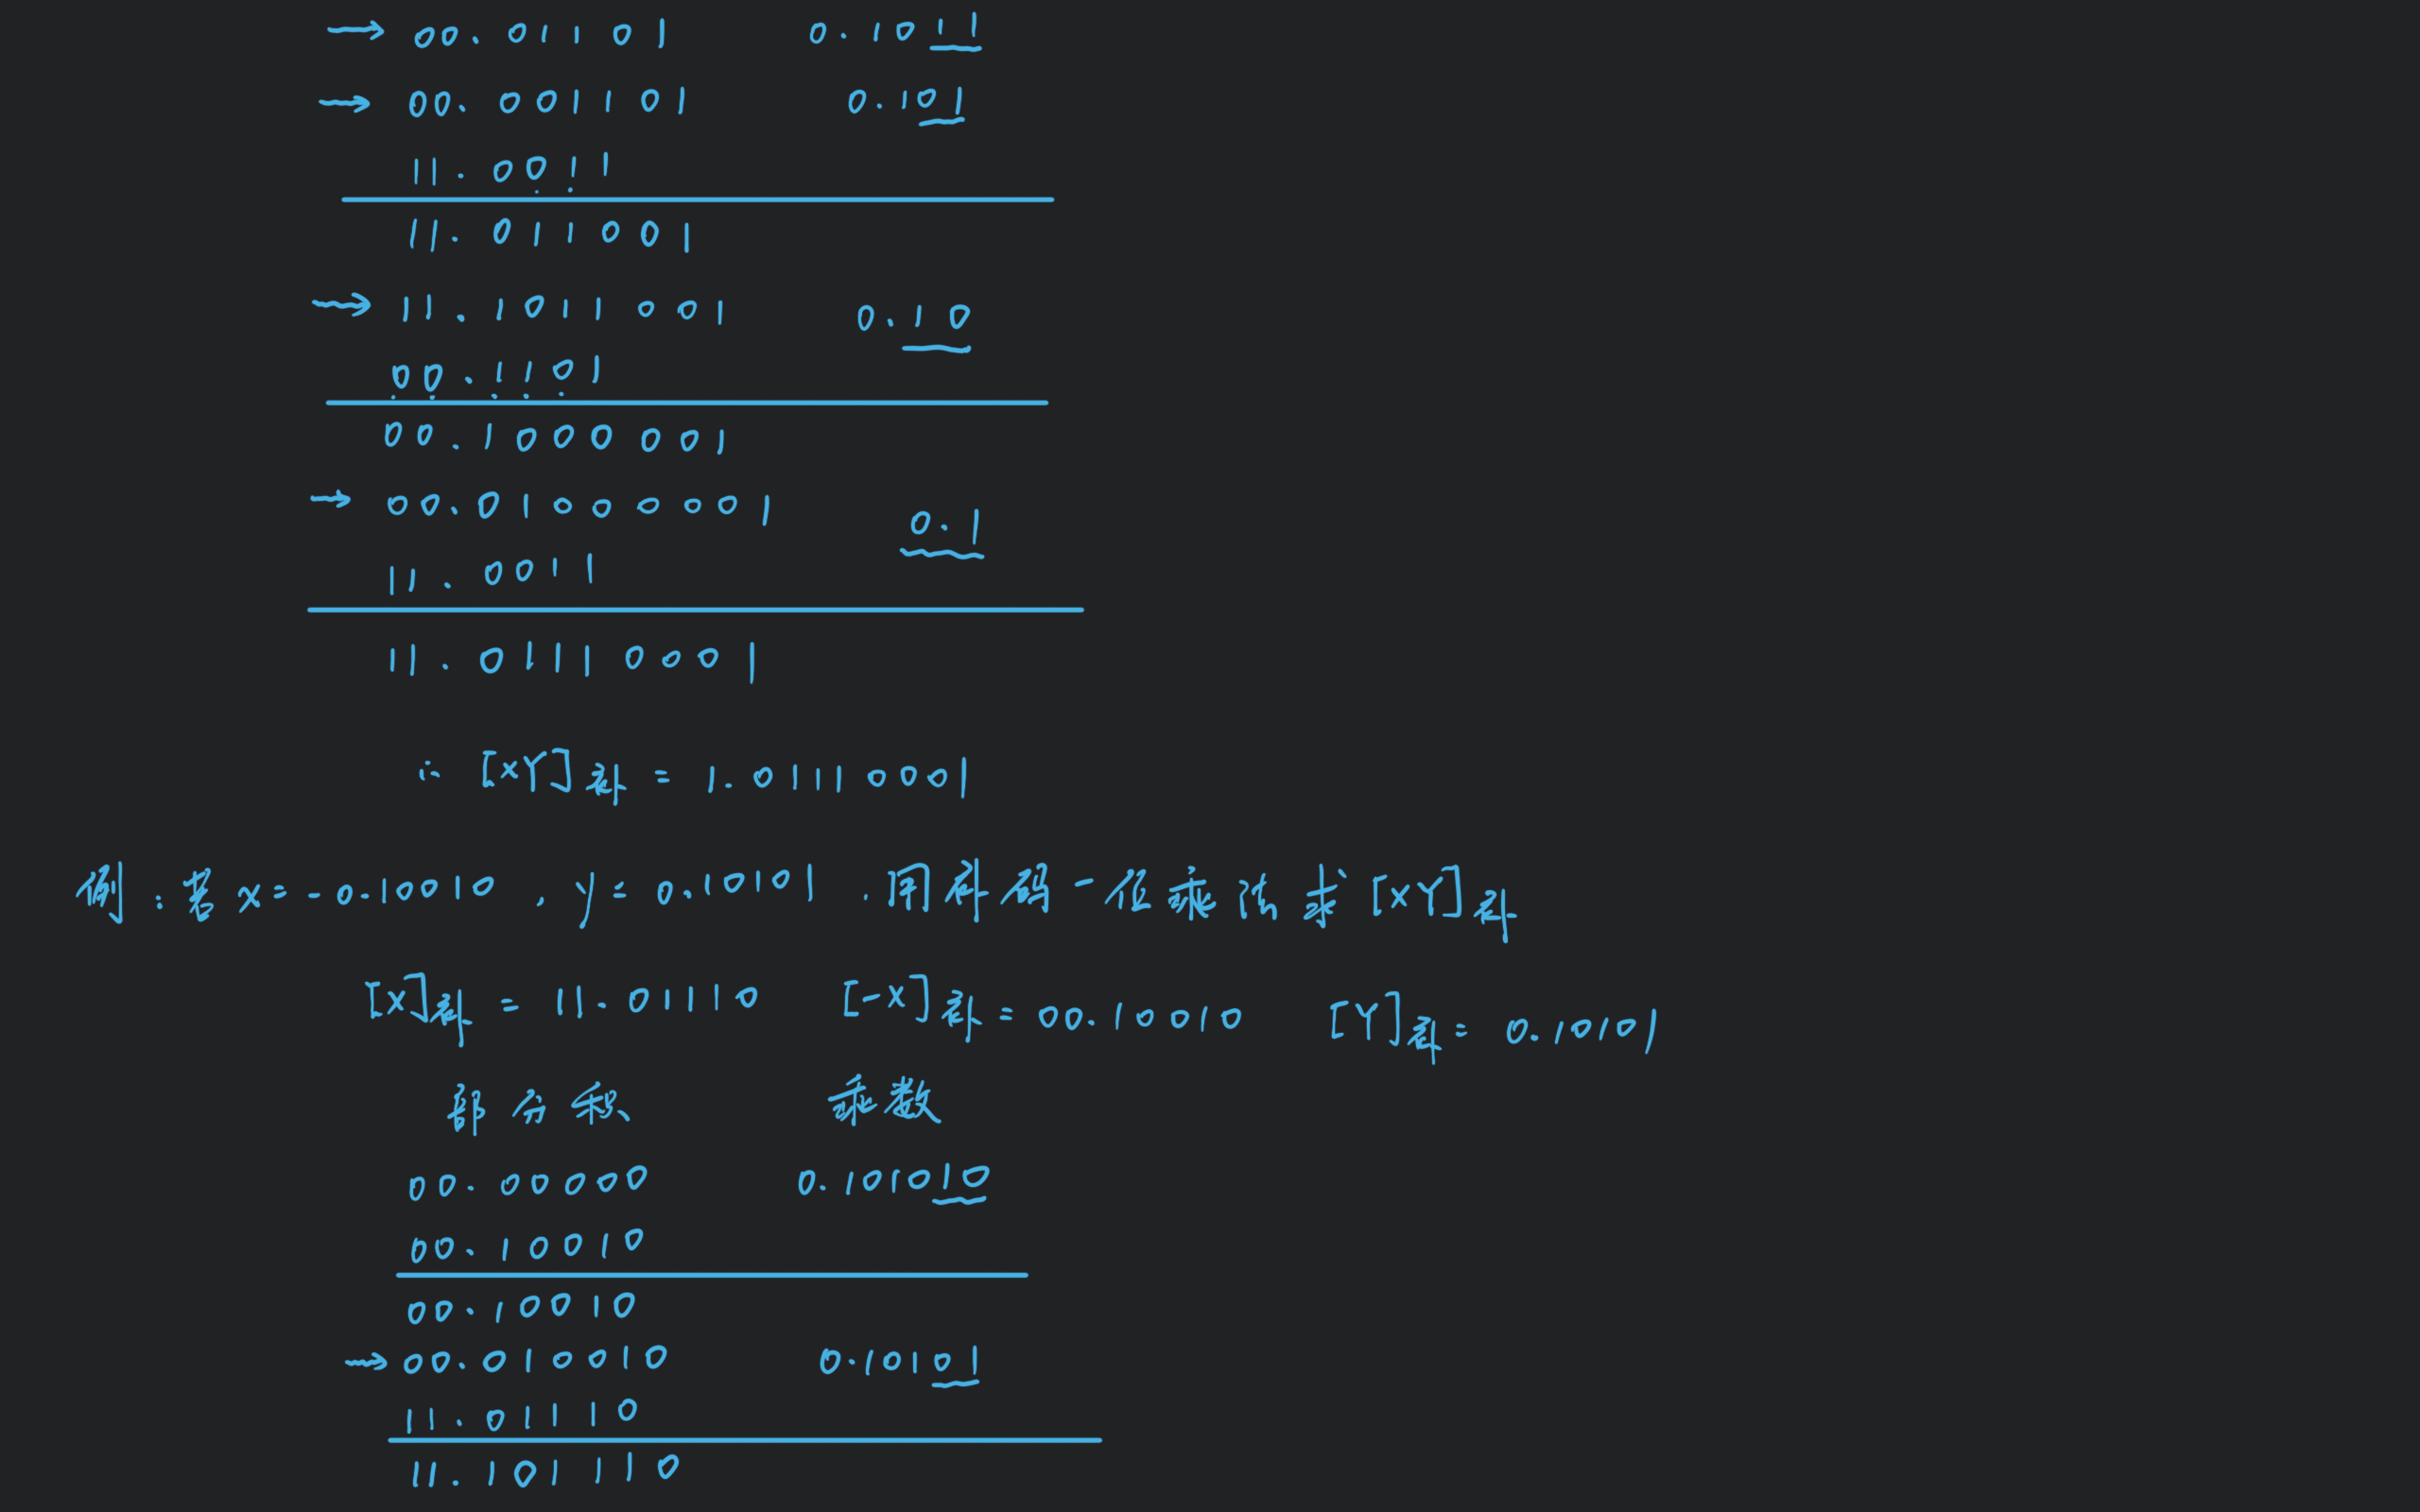 → 00.01101 0.1011
→ 00.001101 0.101
11.0011
11.011001
→ 11.1011001 0.10
00.1101
00.1000001
→ 00.01000001 0.1
11.0011
11.01110001
∴ [XY]补 = 1.01110001
例:若 x=-0.10010, y=0.10101.用补码一位乘法求[XY]补
[X]补 = 11.01110 [-X]补=00.10010 [Y]补=0.10101
部分积 乘数
00.00000 0.101010
00.10010
00.10010
→ 00.010010 0.10101
11.01110
11.101110